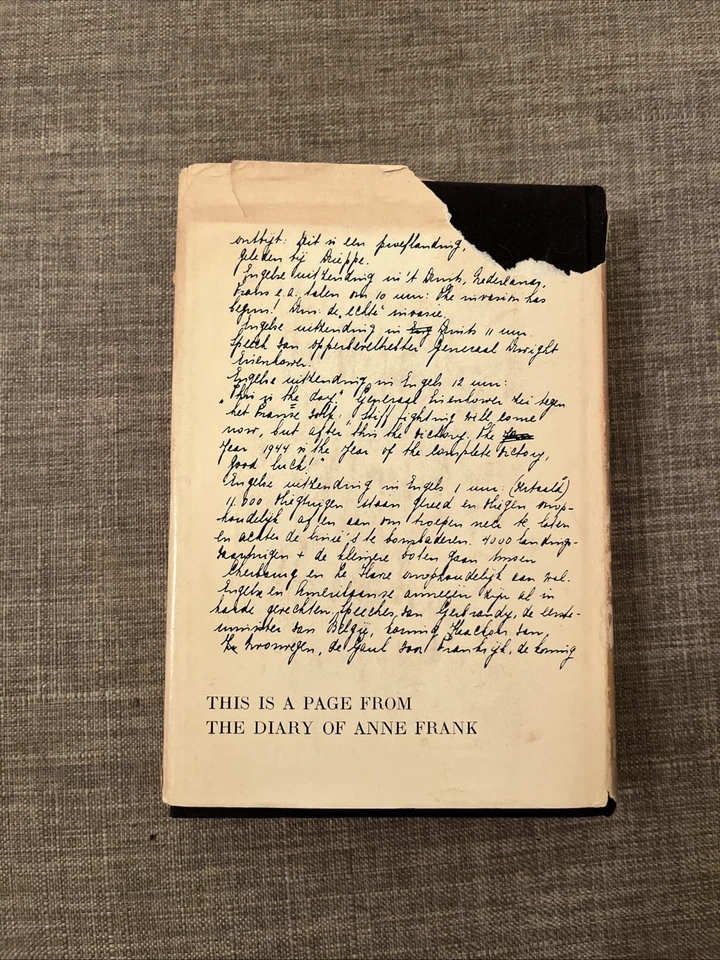 ontbijt: Dit is een proeflanding,
geleden bij Dieppe.
Engelse uitzending in 't Duits, Nederlands,
Frans e.a. talen om 10 uur: The invasion has
begun! Dus: de „echte" invasie.
Engelse uitzending in Duits 11 uur
speech van opperbevelhebber Generaal Dwight
Eisenhower.
Engelse uitzending in Engels 12 uur:
„This is the day." Generaal Eisenhower zei tegen
het Franse volk: „Stiff fighting will come
now, but after this the victory. The
Year 1944 is the Year of the complete victory,
good luck!"
Engelse uitzending in Engels 1 uur: (vertaald)
11.000 vliegtuigen staan gereed en vliegen onop-
houdelijk af en aan om troepen neer te laten
en achter de linie's te bombarderen. 4000 landings-
vaartuigen + de kleinere boten gaan tussen
Cherbourg en Le Havre onophoudelijk aan wal.
Engelse en Amerikaanse armeeën zijn al in
harde gevechten. Speeches van Gerbrandy, de eerste-
minister van België, koning Haakon van
Noorwegen, de Gaul voor Frankrijk, de koning
THIS IS A PAGE FROM
THE DIARY OF ANNE FRANK